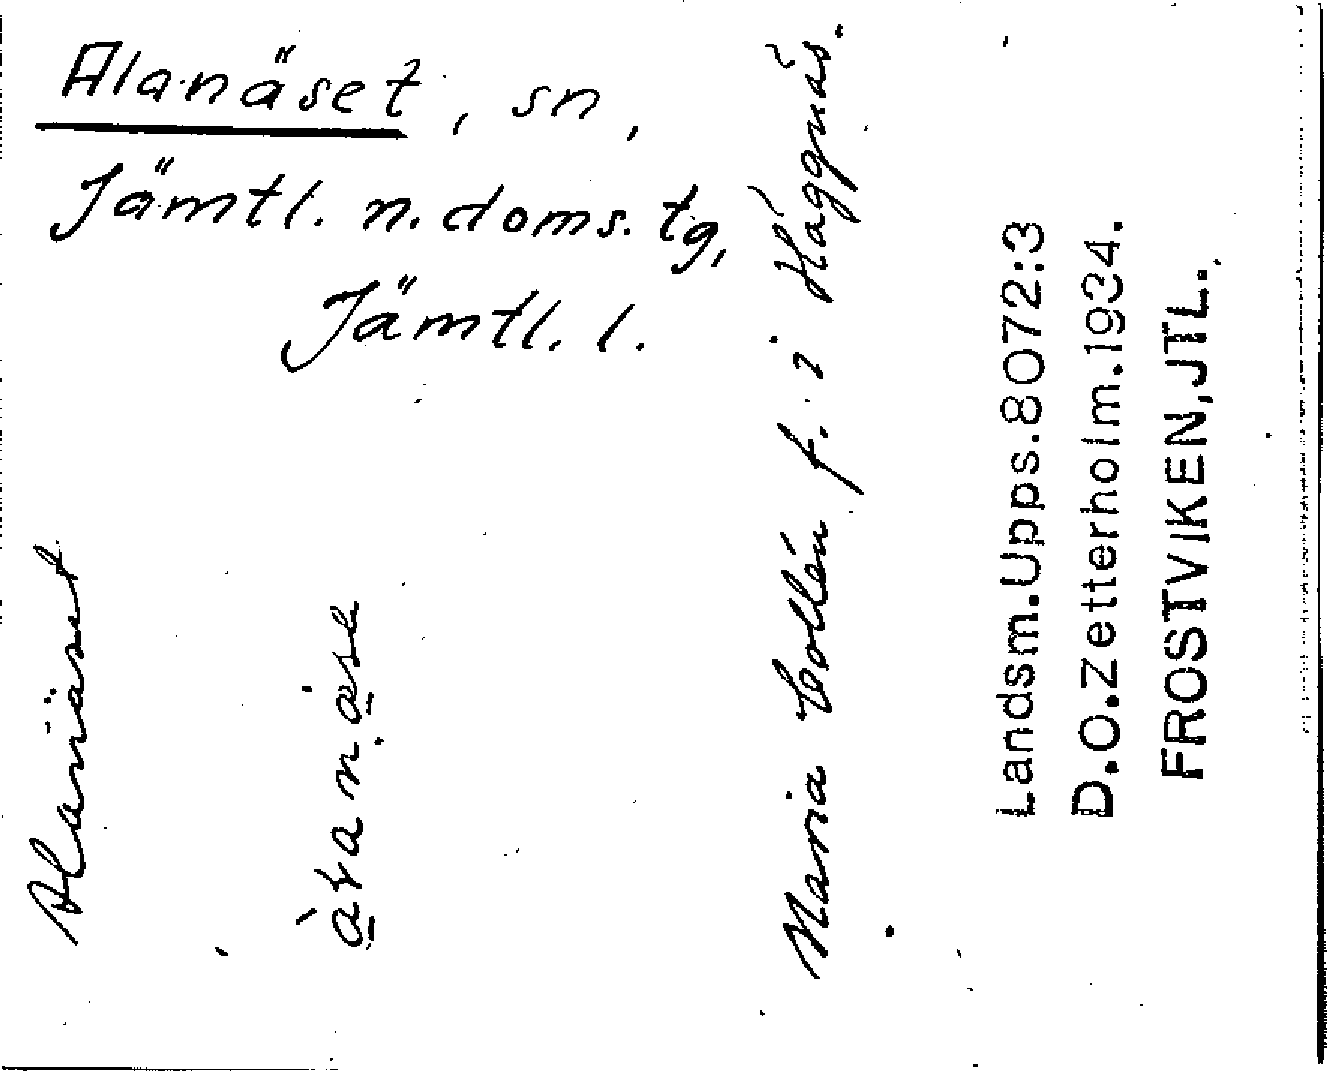 Alanäset, sn,
Jämtl. n. doms. tg,
Jämtl. l.
Alanäset
Maria Collén f. i Häggnäs.
Landsm. Upps. 8072:3
D.O. Zetterholm. 1934.
FROSTVIKEN, JTL.